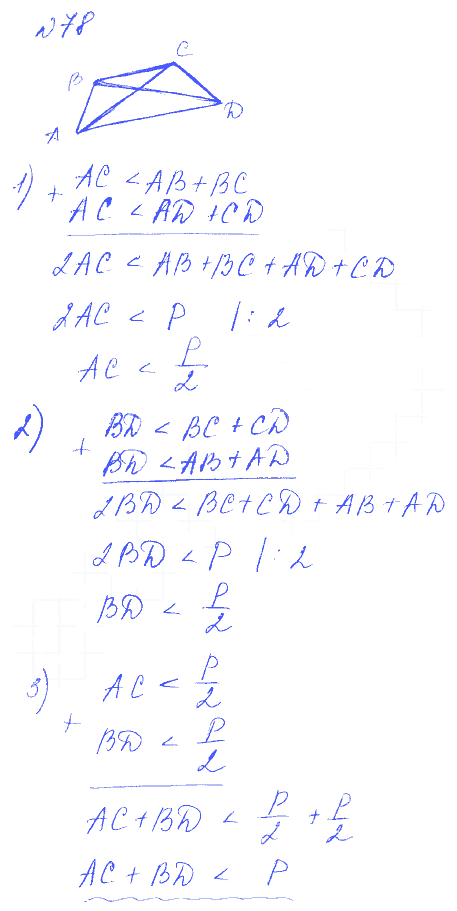 N78
C
B
D
A
1) + AC < AB + BC
AC < AD + CD
2AC < AB + BC + AD + CD
2AC < P |: 2
AC < P/2
2) + BD < BC + CD
BD < AB + AD
2BD < BC + CD + AB + AD
2BD < P |: 2
BD < P/2
3) + AC < P/2
BD < P/2
AC + BD < P/2 + P/2
AC + BD < P